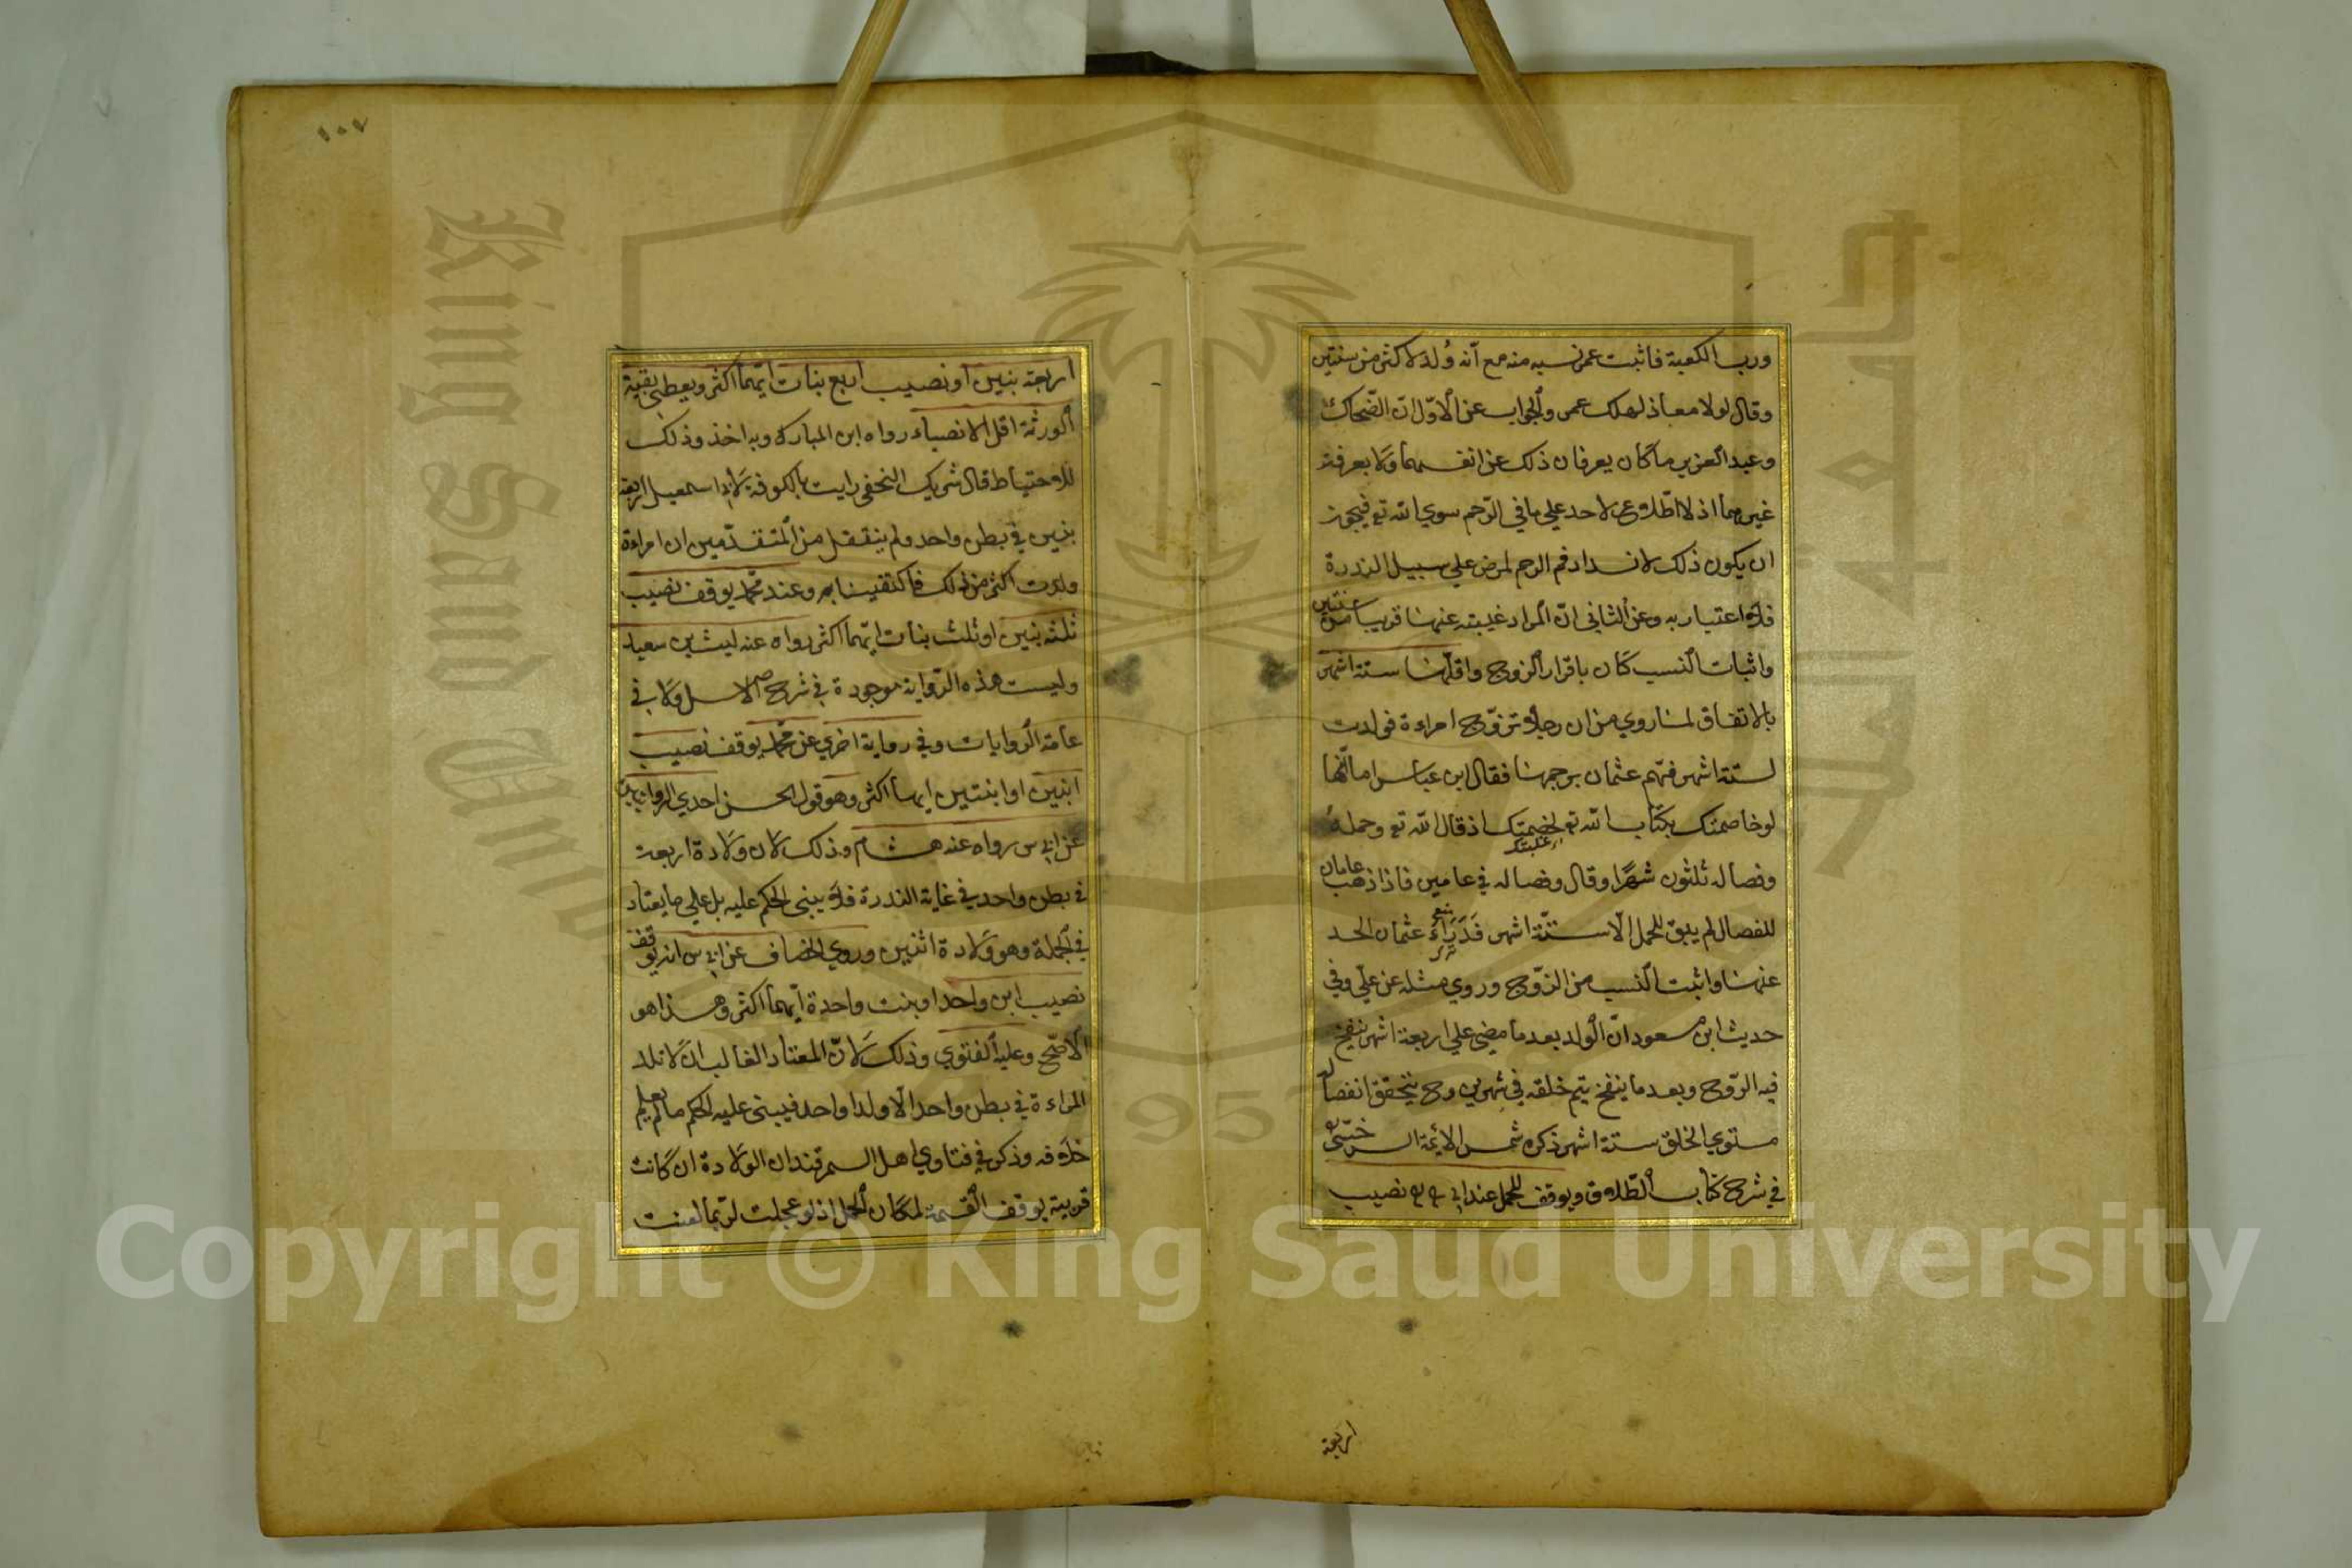 ورب الكعبة فاثبت عمر نسبه منه مع انه وُلد لاكثر من سنتين
وقال لولا معاذ لهلك عمر والجواب عن الاوّل انّ الضّحاك
وعبد العزيز ما كان يعرفان ذلك عن انفسهما ولا يعرفه
غيرهما اذ لا اطّلاع لاحد علي ما في الرّحم سوي الله تع فيجوز
ان يكون ذلك لانسداد فم الرحم لمرض علي سبيل الندرة
فلا اعتبار به وعن الثاني انّ المراد غيبته عنها قريبا من سنتين
واثبات النسب كان باقرار الزوج واقلّها ستة اشهر
بالاتفاق لما روي من ان رجلا تزوّج امراءة فولدت
لستة اشهر فهّم عثمان برجمها فقال ابن عباس اما انّها
لو خاصمتك بكتاب الله تع لخصمتك اذ قال الله تع وحمله
وفصاله ثلثون شهرًا وقال وفصاله في عامين فاذا ذهب عامان
للفصال لم يبق للحمل الّا ستّة اشهر فَدَرَاءَ عثمان الحد
عنها واثبت النسب من الزّوج وروي مثله عن علي وفي
حديث ابن مسعود انّ الولد بعد ما مضي علي اربعة اشهر ينفخ
فيه الرّوح وبعد ما ينفخ يتم خلقه في شهرين وح يتحقق انفصاله
مستوي الخلق ستة اشهر ذكره شمس الائمة السرخسّى
في شرح كتاب الطّلاق ويوقف للحمل عند ابي ح نصيب
اربعة
١٠٧
اربعة بنين او نصيب اربع بنات ايّهما اكثر ويعطي بقية
الورثة اقل الانصباء رواه ابن المبارك وبه اخذ وذلك
للاحتياط قال شريك النخعي رايت بالكوفة لابي اسمعيل اربعة
بنين في بطن واحد ولم ينقل من المتقدّمين ان امراءة
ولدت اكثر من ذلك فاكتفينا به وعند محمّد يوقف نصيب
ثلثة بنين او ثلث بنات ايّهما اكثر رواه عنه ليث بن سعيد
وليست هذه الرّواية موجودة في شرح الاصل ولا في
عامة الروايات وفي رواية اخري عن محمّد يوقف نصيب
ابنين او ابنتين ايهما اكثر وهو قول الحسن احدي الروايتين
عن ابي س رواه عنه هشام وذلك لان ولادة اربعة
في بطن واحد في غاية الندرة فلا يبنى الحكم عليه بل علي ما يعتاد
في الجملة وهو ولادة اثنين وروي الخصاف عن ابي س انه يوقف
نصيب ابن واحد او بنت واحدة ايّهما اكثر وهذا هو
الاصّح وعليه الفتوي وذلك لانّ المعتاد الغالب ان لا تلد
المراءة في بطن واحد الّا ولدا واحد فيبنى عليه الحكم ما لم يعلم
خلافه وذكر في فتاوي اهل السمرقند ان الولادة ان كانت
قريبة يوقف القسمة لمكان الحمل اذ لو عجلت لربّما لغنت
King Saud University
جامعة الملك سعود
1957
Copyright © King Saud University